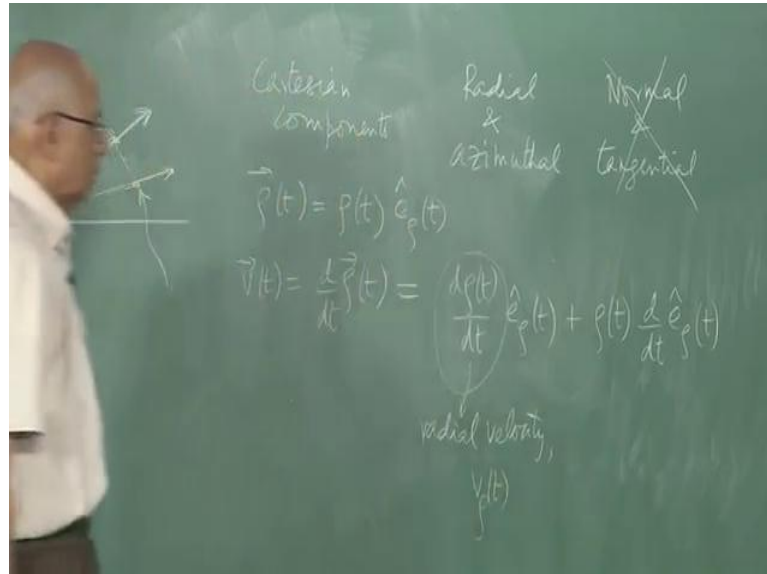 Cartesian components
Radial & azimuthal
Normal & tangential
$\vec{\rho}(t) = \rho(t)\,\hat{e}_{\rho}(t)$
$\vec{v}(t) = \frac{d}{dt}\vec{\rho}(t) = \frac{d\rho(t)}{dt}\hat{e}_{\rho}(t) + \rho(t)\frac{d}{dt}\hat{e}_{\rho}(t)$
radial velocity,
$v_{\rho}(t)$